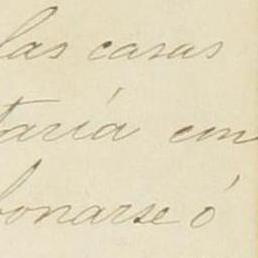 las casas
taría con
bonarse ó